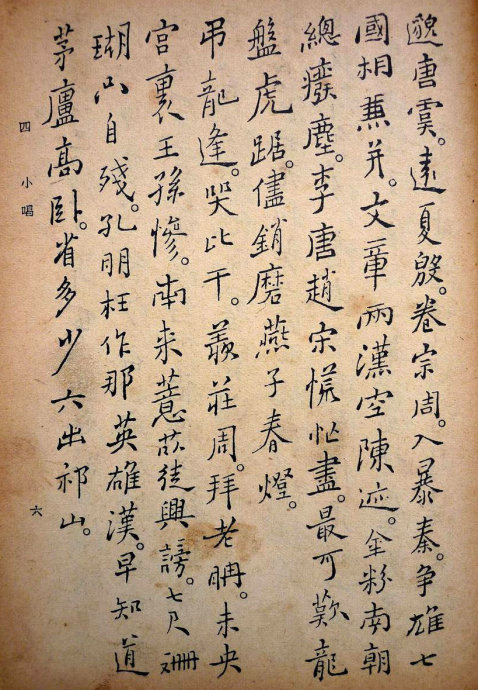 邈唐虞。遠夏殷。卷宗周。入暴秦。争雄七
國相兼并。文章兩漢空陳迹。金粉南朝
總癈塵。李唐趙宋慌忙盡。最可歎龍
盤虎踞。儘銷磨燕子春燈。
弔龍逢。哭比干。羨莊周。拜老聃。未央
宮裏王孫慘。南来薏苡徒興謗。七尺珊
瑚只自殘。孔明枉作那英雄漢。早知道
茅廬高卧。省多少六出祁山。
四 小唱 六